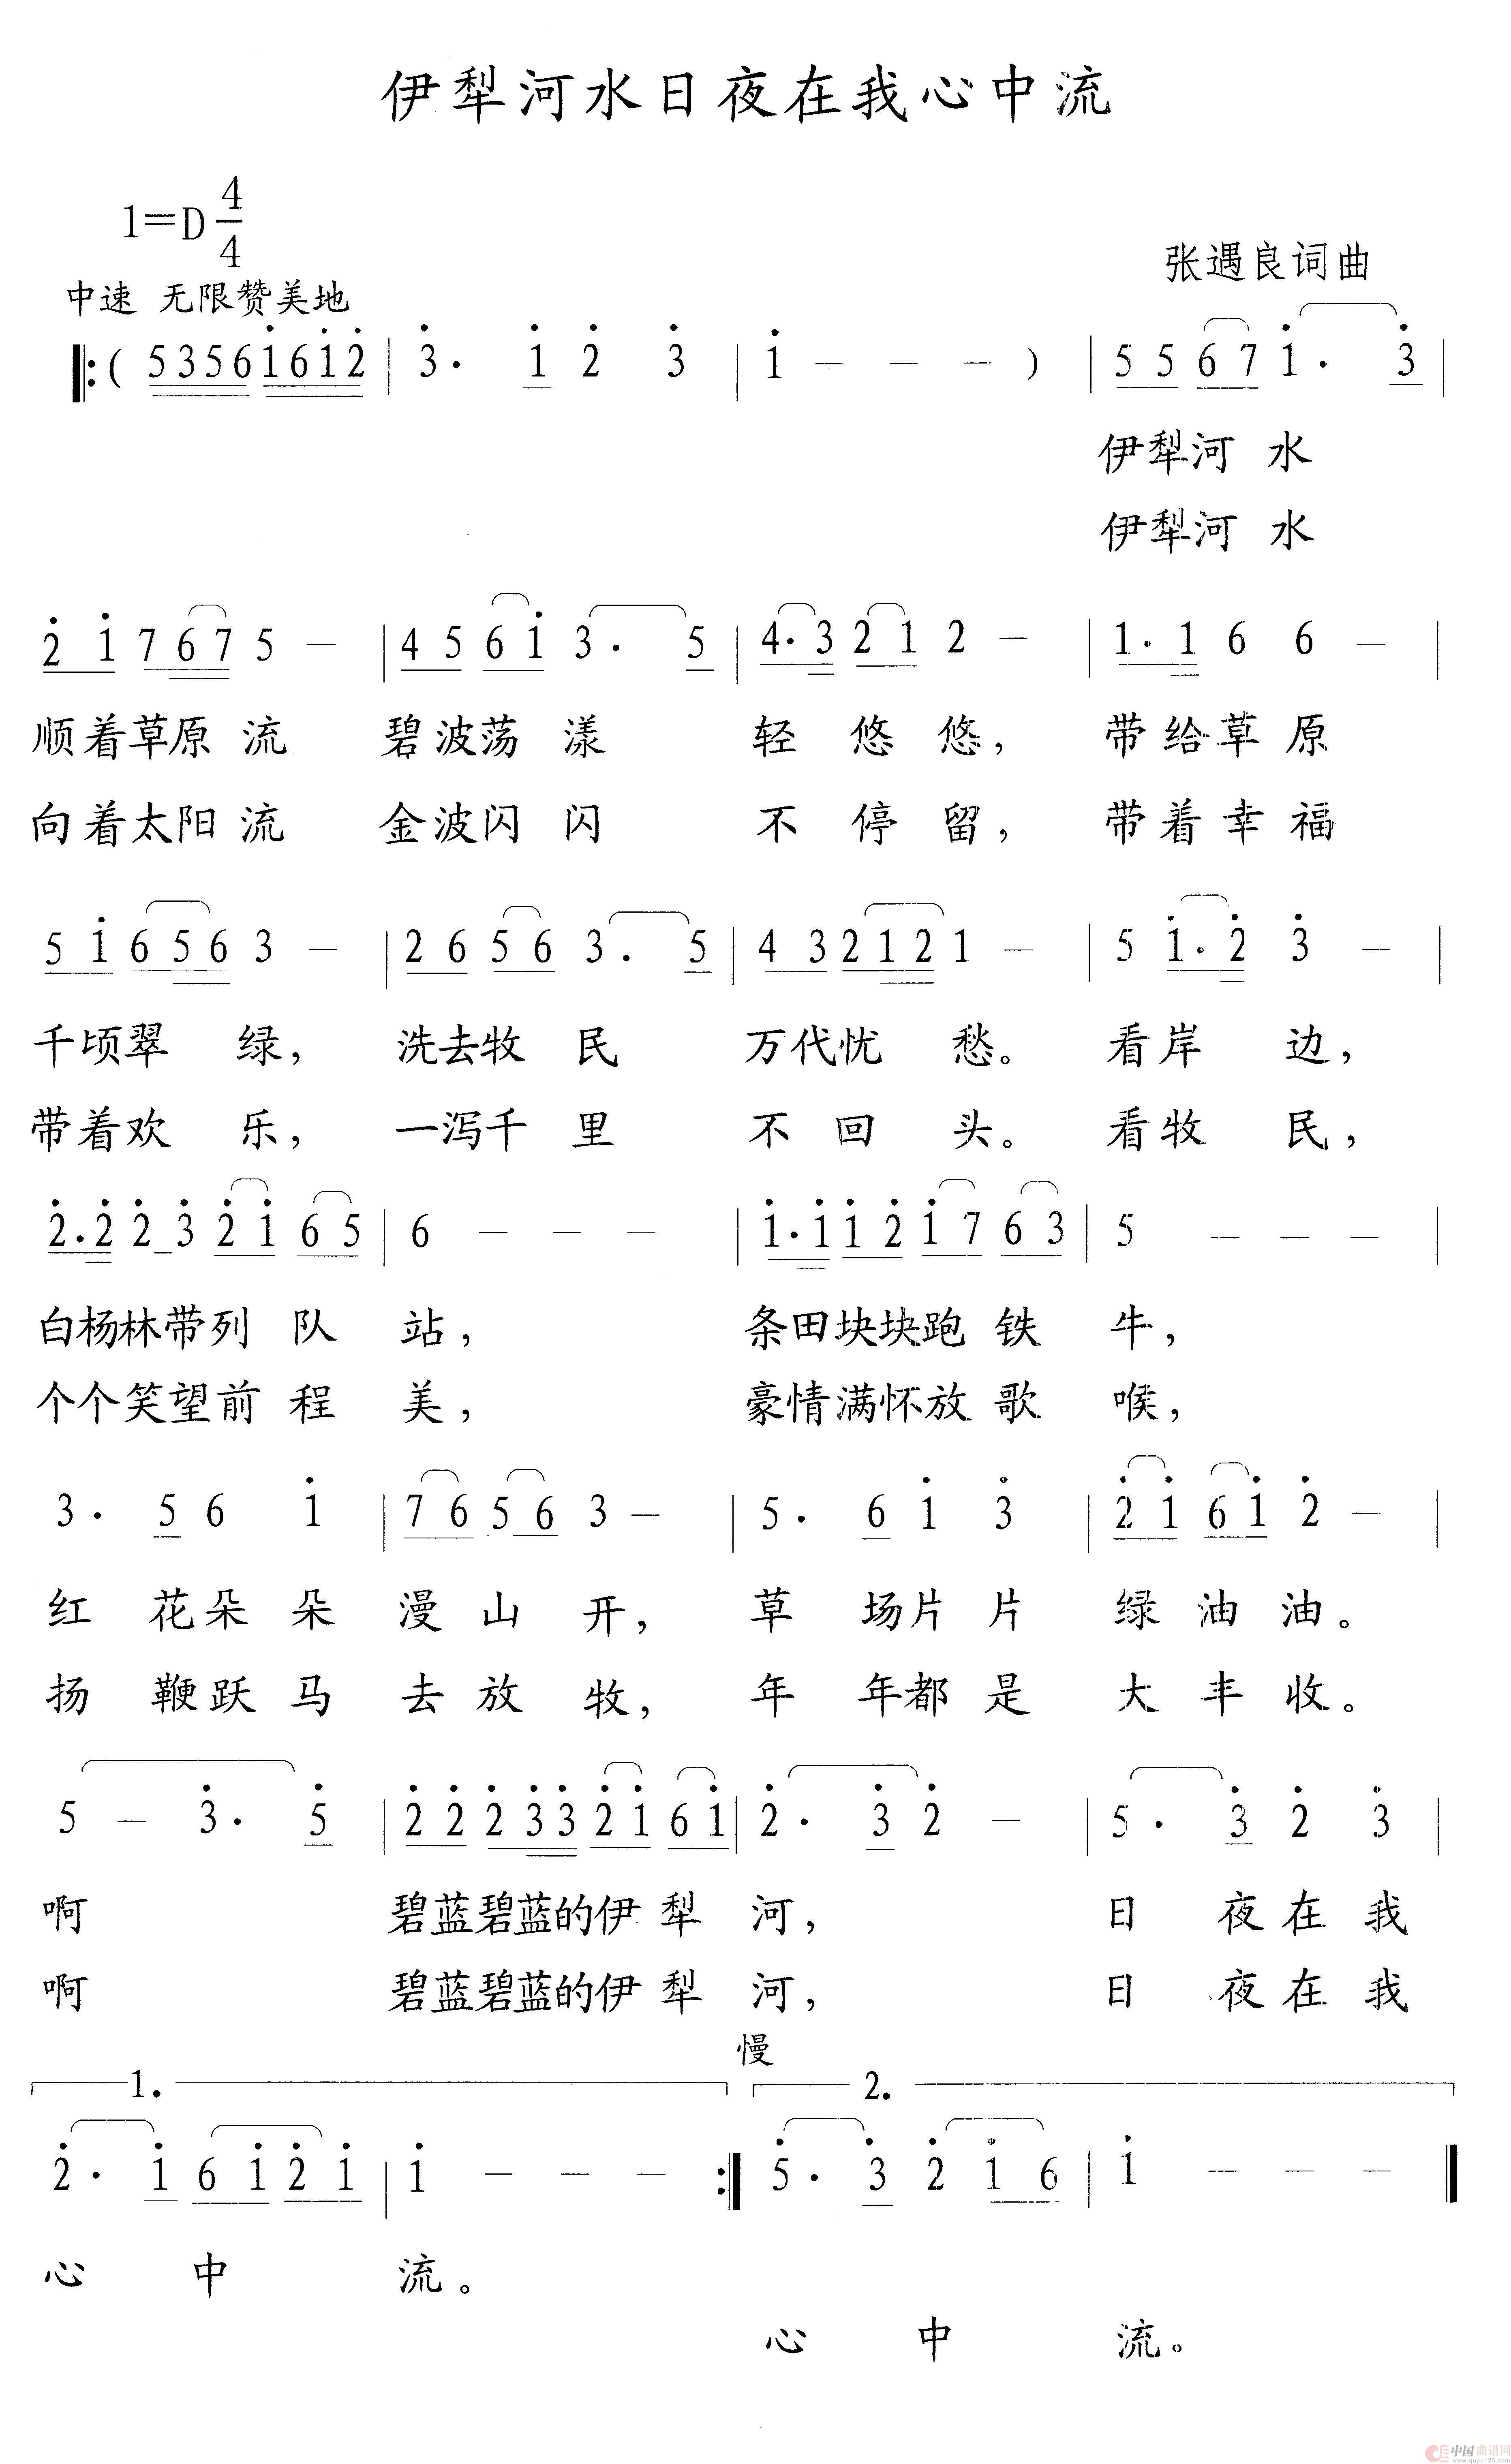 伊犁河水日夜在我心中流
1=D 4/4
张遇良词曲
中速 无限赞美地
𝄆 ( 5356i̇6i̇2̇ | 3̇· i̇ 2̇ 3̇ | i̇ — — — ) | 5 5 6 7 i̇· 3̇ |
伊犁河 水
伊犁河 水
2̇ i̇ 7 6 7 5 — | 4 5 6 i̇ 3· 5 | 4·3 2 1 2 — | 1·1 6 6 — |
顺着草原 流 碧波荡 漾 轻 悠 悠, 带给草 原
向着太阳 流 金波闪 闪 不 停 留, 带着幸 福
5 i̇ 6 5 6 3 — | 2 6 5 6 3· 5 | 4 3 2 1 2 1 — | 5 i̇·2̇ 3̇ — |
千顷翠 绿, 洗去牧 民 万代忧 愁。 看岸 边,
带着欢 乐, 一泻千 里 不 回 头。 看牧 民,
2̇·2̇ 2̇ 3̇ 2̇ i̇ 6 5 | 6 — — — | i̇·i̇ i̇ 2̇ i̇ 7 6 3 | 5 — — — |
白杨林带列 队 站, 条田块块跑 铁 牛,
个个笑望前 程 美, 豪情满怀放 歌 喉,
3· 5 6 i̇ | 7 6 5 6 3 — | 5· 6 i̇ 3̇ | 2̇ i̇ 6 i̇ 2̇ — |
红 花朵 朵 漫 山 开, 草 场片 片 绿 油 油。
扬 鞭跃 马 去 放 牧, 年 年都 是 大 丰 收。
5 — 3̇· 5̇ | 2̇ 2̇ 2̇ 3̇ 3̇ 2̇ i̇ 6 i̇ | 2̇· 3̇ 2̇ — | 5· 3̇ 2̇ 3̇ |
啊 碧蓝碧蓝的伊 犁 河, 日 夜在 我
啊 碧蓝碧蓝的伊 犁 河, 日 夜在 我
慢
1. 2.
2̇· i̇ 6 i̇ 2̇ i̇ | i̇ — — — 𝄇 5̇· 3̇ 2̇ i̇ 6 | i̇ — — — ‖
心 中 流。
心 中 流。
中国曲谱网
www.qupu123.com